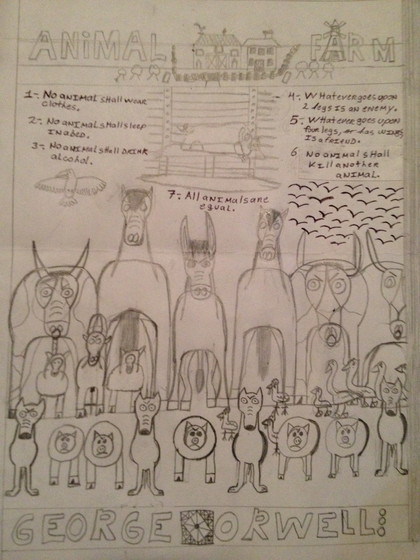 ANiMAL FARM
1-. No animal shall wear
clothes.
2-. No animal shall sleep
in a bed.
3-. No animal shall drink
alcohol.
4-. Whatever goes upon
2 legs is an enemy.
5-. Whatever goes upon
four legs, or has wings
is a friend.
6 No animal shall
kill another
animal.
7-. All animals are
equal.
GEORGE ORWELL